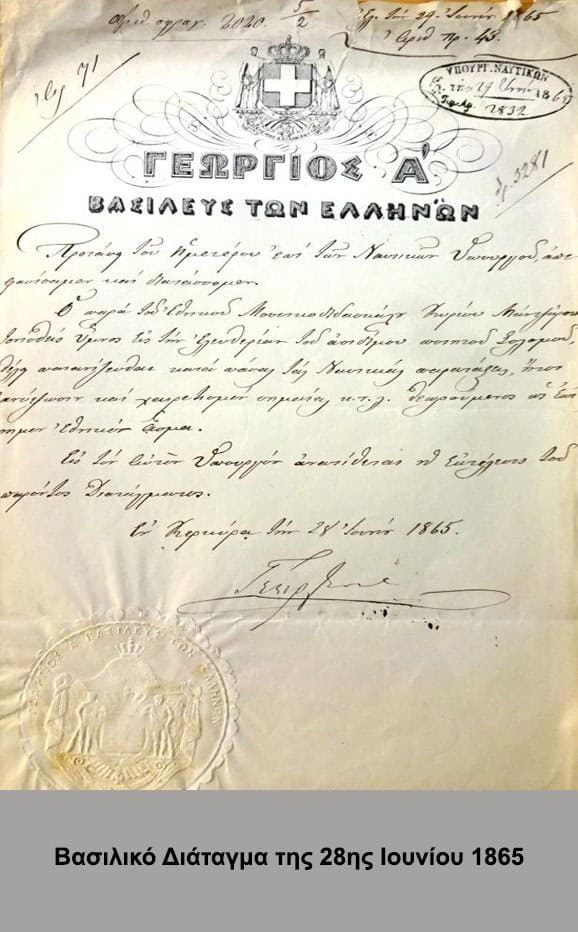 Αριθ. σφραγ. 2020 5/2
τὴν 29 Ἰουνίου 1865
Ἀριθ. πρ. 45.
71
ΥΠΟΥΡΓ. ΝΑΥΤΙΚΩΝ
τὴν 29 1865
2832
3281
ΓΕΩΡΓΙΟΣ Α΄
ΒΑΣΙΛΕΥΣ ΤΩΝ ΕΛΛΗΝΩΝ
Προτάσει τοῦ Ἡμετέρου ἐπὶ τῶν Ναυτικῶν Ὑπουργοῦ, ἀπε
φασίσαμεν καὶ διατάσσομεν.
Ὁ παρὰ τοῦ Ἐθνικοῦ Μουσικοδιδασκάλου Κυρίου Μαντζάρου
τονισθεὶς Ὕμνος εἰς τὴν ἐλευθερίαν τοῦ ἀοιδίμου ποιητοῦ Σολωμοῦ,
θέλει παιανίζεσθαι κατὰ πάσας τὰς Ναυτικὰς παρατάξεις,
ἀνύψωσιν καὶ χαιρετισμὸν σημαίας κ.τ.λ. θεωρούμενος ὡς ἐπί
σημον Ἐθνικὸν ᾆσμα.
Εἰς τὸν αὐτὸν Ὑπουργὸν ἀνατίθεται ἡ ἐκτέλεσις τοῦ
παρόντος Διατάγματος.
Ἐν Κερκύρᾳ τὴν 28 Ἰουνίου 1865.
Γεώργιος
ΓΕΩΡΓΙΟΣ Α ΒΑΣΙΛΕΥΣ ΤΩΝ ΕΛΛΗΝΩΝ
Βασιλικό Διάταγμα της 28ης Ιουνίου 1865